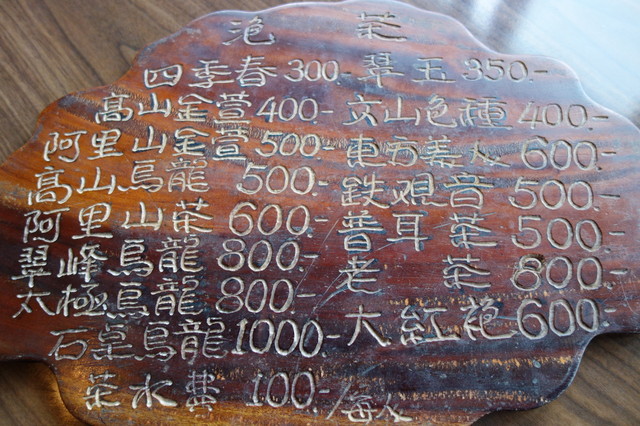 泡 茶
四季春 300.- 翠玉 350.-
高山金萱 400.- 文山包種 400.-
阿里山金萱 500.- 東方美人 600.-
高山烏龍 500.- 鉄観音 500.-
阿里山茶 600.- 普耳茶 500.-
翠峰烏龍 800.- 老 茶 800.-
太極烏龍 800.- 大紅袍 600.-
石桌烏龍 1000.-
茶水費 100.-/每人